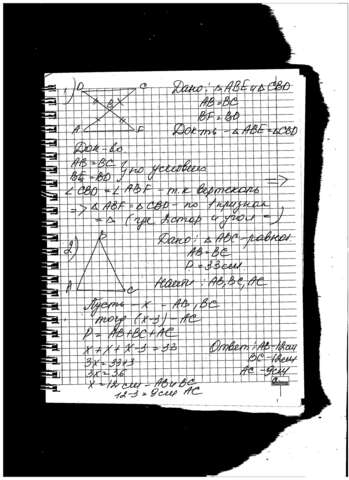 1) D C
Дано: △ABE и △CBD
AB=BC
B
BF=BD
A F
Док-ть - △ABE=△CBD
Док-во
AB=BC } по условию
BE=BD
∠CBD=∠ABF - т.к вертекаль =>
=> △ABF=△CBD - по 1 признак
= △ (где 2 стор и угол =)
2) B
Дано: △ABC-равноб
AB=BC
P=33см
A C
Найти: AB, BC, AC
Пусть - x - AB, BC
тогд (x-3) - AC
P=AB+BC+AC
x+x+x-3=33
3x=33+3
3x=36
x=12см - AB и BC
12-3=9см AC
Ответ: AB-12см
BC-12см
AC-9см